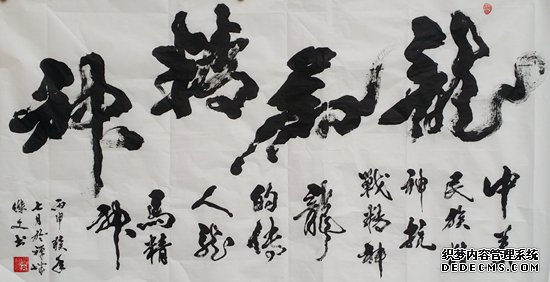 龍馬精神
中華
民族
神抗
戰精神
龍
的傳
人龍
馬精
神
丙申
七月於
文书
织梦内容管理系统
DEDECMS.COM